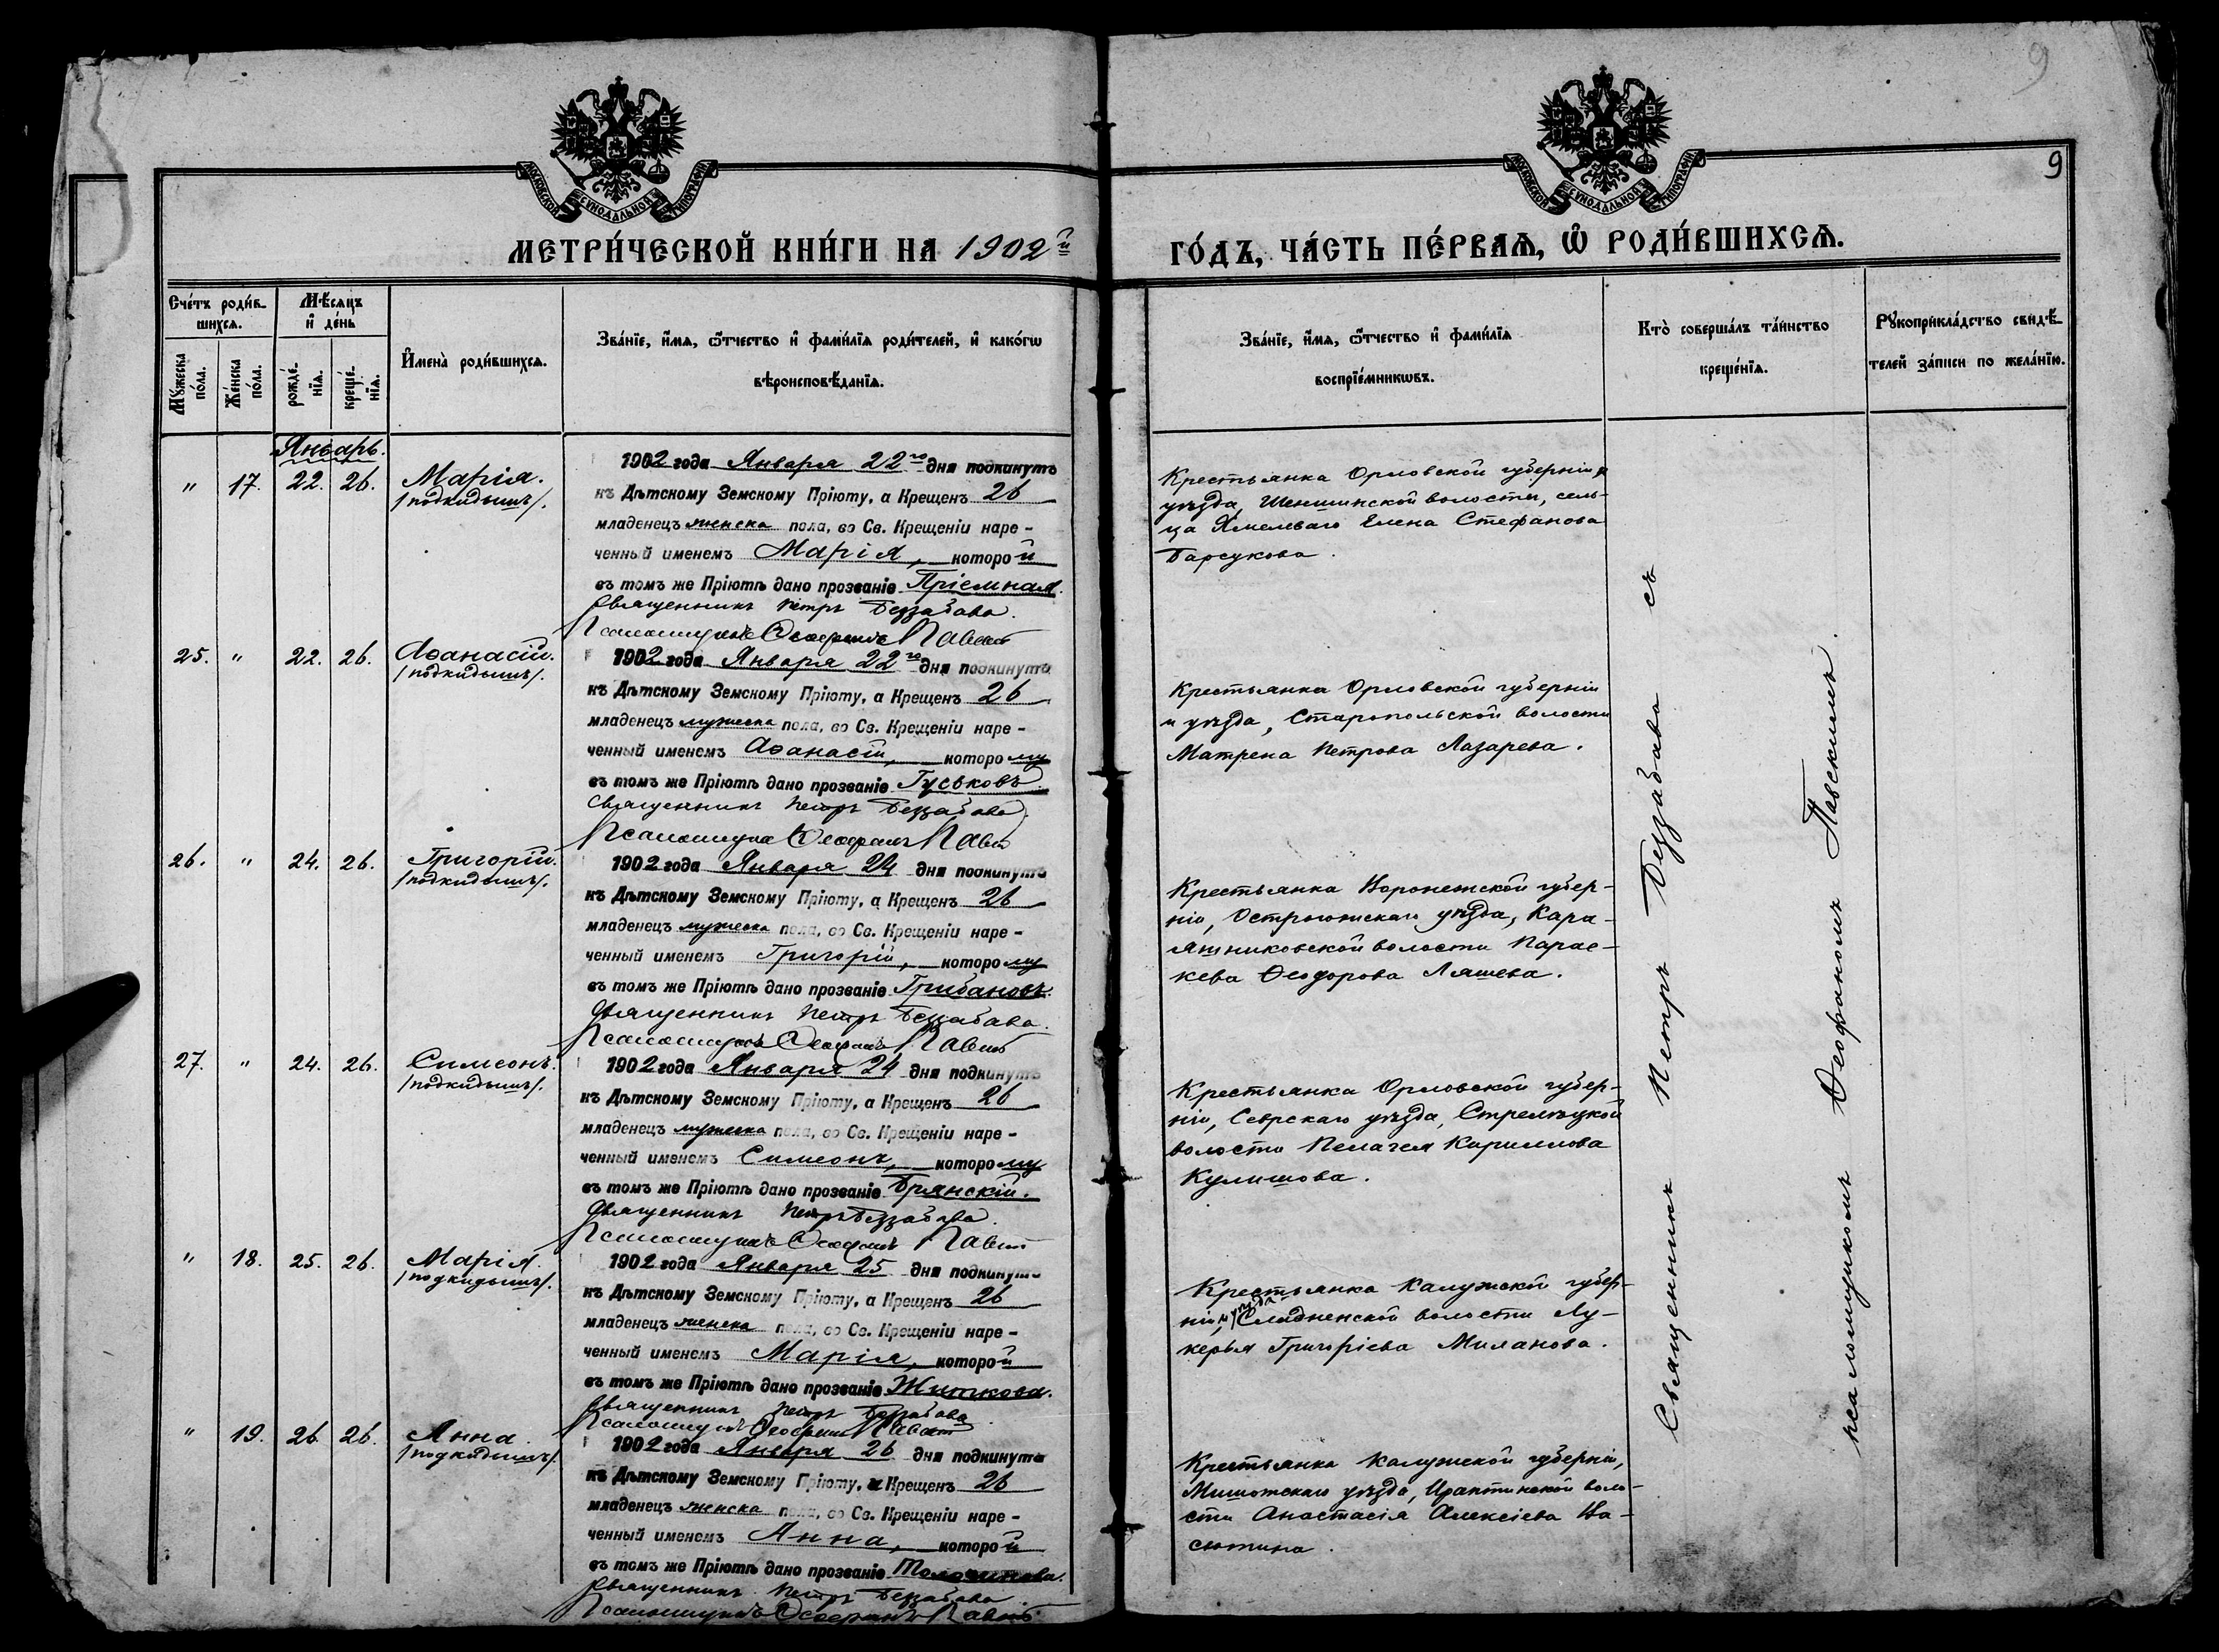 9
9
МОСКОВСКОЙ СѴНОДАЛЬНОЙ ТИПОГРАФІИ
МОСКОВСКОЙ СѴНОДАЛЬНОЙ ТИПОГРАФІИ
МЕТРИ́ЧЕСКОЙ КНИ́ГИ НА 1902й
ГО́ДЪ, ЧА́СТЬ ПЕ́РВАѦ, Ѽ РОДИ́ВШИХСѦ.
Сче́тъ роди́в-
шихсѧ.
Мѣ́сѧцъ
и҆ де́нь
Мꙋ́жеска по́ла.
Же́нска по́ла.
рожде́-
нїѧ.
креще́-
нїѧ.
И҆мена̀ роди́вшихсѧ.
Зва́нїе, и҆́мѧ, ѻ҆́тчество и҆ фами́лїѧ роди́телей, и҆ како́гѡ
вѣроисповѣ́данїѧ.
Зва́нїе, и҆́мѧ, ѻ҆́тчество и҆ фами́лїѧ
воспрїе́мникѡвъ.
Кто̀ соверша́лъ та́инство
креще́нїѧ.
Рꙋкоприкла́дство свидѣ́-
телей за́писи по жела́нїю.
Январь.
" 17. 22. 26. Марія.
/подкидышъ/.
1902 года Января 22го дня подкинутъ
къ Дѣтскому Земскому Пріюту, а Крещенъ 26
младенецъ женска пола, во Св. Крещеніи наре-
ченный именемъ Марія, которой
въ томъ же Пріютѣ дано прозваніе Пріемная.
Священникъ Петръ Беззабава.
Псаломщикъ Ѳеофанъ
Крестьянка Орловской губерніи и
уѣзда, Шеншинской волости, сель-
ца Хмелеваго Елена Стефанова
Барсукова.
25. " 22. 26. Аѳанасій.
/подкидышъ/.
1902 года Января 22го дня подкинутъ
къ Дѣтскому Земскому Пріюту, а Крещенъ 26
младенецъ мужеска пола, во Св. Крещеніи наре-
ченный именемъ Аѳанасій, которому
въ томъ же Пріютѣ дано прозваніе Гуськовъ.
Священникъ Петръ Беззабава.
Псаломщикъ Ѳеофанъ
Крестьянка Орловской губерніи
и уѣзда, Старопольской волости
Матрена Петрова Лазарева.
26. " 24. 26. Григорій.
/подкидышъ/.
1902 года Января 24 дня подкинутъ
къ Дѣтскому Земскому Пріюту, а Крещенъ 26
младенецъ мужеска пола, во Св. Крещеніи наре-
ченный именемъ Григорій, которому
въ томъ же Пріютѣ дано прозваніе Грибановъ.
Священникъ Петръ Беззабава.
Псаломщикъ Ѳеофанъ
Крестьянка Воронежской губер-
ніи, Острогожскаго уѣзда, Кара-
яшниковской волости Парас-
кева Ѳеодорова Ляшева.
27. " 24. 26. Симеонъ.
/подкидышъ/.
1902 года Января 24 дня подкинутъ
къ Дѣтскому Земскому Пріюту, а Крещенъ 26
младенецъ мужеска пола, во Св. Крещеніи наре-
ченный именемъ Симеонъ, которому
въ томъ же Пріютѣ дано прозваніе Брянскій.
Священникъ Петръ Беззабава.
Псаломщикъ Ѳеофанъ
Крестьянка Орловской губер-
ніи, Сѣврскаго уѣзда, Стрелецкой
волости Пелагея Кириллова
Кулишова.
" 18. 25. 26. Марія.
/подкидышъ/.
1902 года Января 25 дня подкинутъ
къ Дѣтскому Земскому Пріюту, а Крещенъ 26
младенецъ женска пола, во Св. Крещеніи наре-
ченный именемъ Марія, которой
въ томъ же Пріютѣ дано прозваніе Житкова.
Священникъ Петръ Беззабава
Псаломщикъ Ѳеофанъ
Крестьянка Калужской губер-
ніи, и уѣзда волости Лу-
керья Григоріева Миланова.
" 19. 26. 26. Анна.
/подкидышъ/
1902 года Января 26 дня подкинутъ
къ Дѣтскому Земскому Пріюту, и Крещенъ 26
младенецъ женска пола, во Св. Крещеніи наре-
ченный именемъ Анна, которой
въ томъ же Пріютѣ дано прозваніе
Священникъ Петръ Беззабава
Псаломщикъ Ѳеофанъ
Крестьянка Калужской губерніи,
уѣзда, воло-
сти Анастасія Алексіева На-
сютина.
Священникъ Петръ Беззабава съ
псаломщикомъ Ѳеофаномъ Павскимъ.